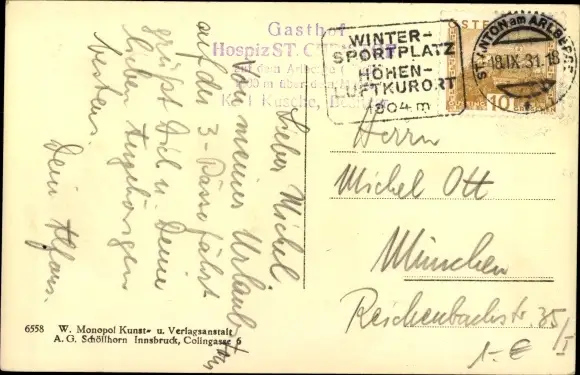 Gasthof
Hospiz ST. CHRISTOPH
auf dem Arlberg
Karl Kusche,
WINTER-
SPORTPLATZ
HÖHEN-
LUFTKURORT
1304 m
ÖSTERR
10
ST. ANTON am ARLBERG
18.IX.31.18
Lieber Michel
Von meiner Urlaubs tour
auf der 3-Pässefahrt
grüßt Dich u. Deine
lieben Angehörigen
bestens
Dein Alfons.
Herrn
Michel Ott
München
Reichenbachstr. 35/I
1.- €
6558 W. Monopol Kunst- u. Verlagsanstalt
A. G. Schöllhorn Innsbruck, Colingasse 6